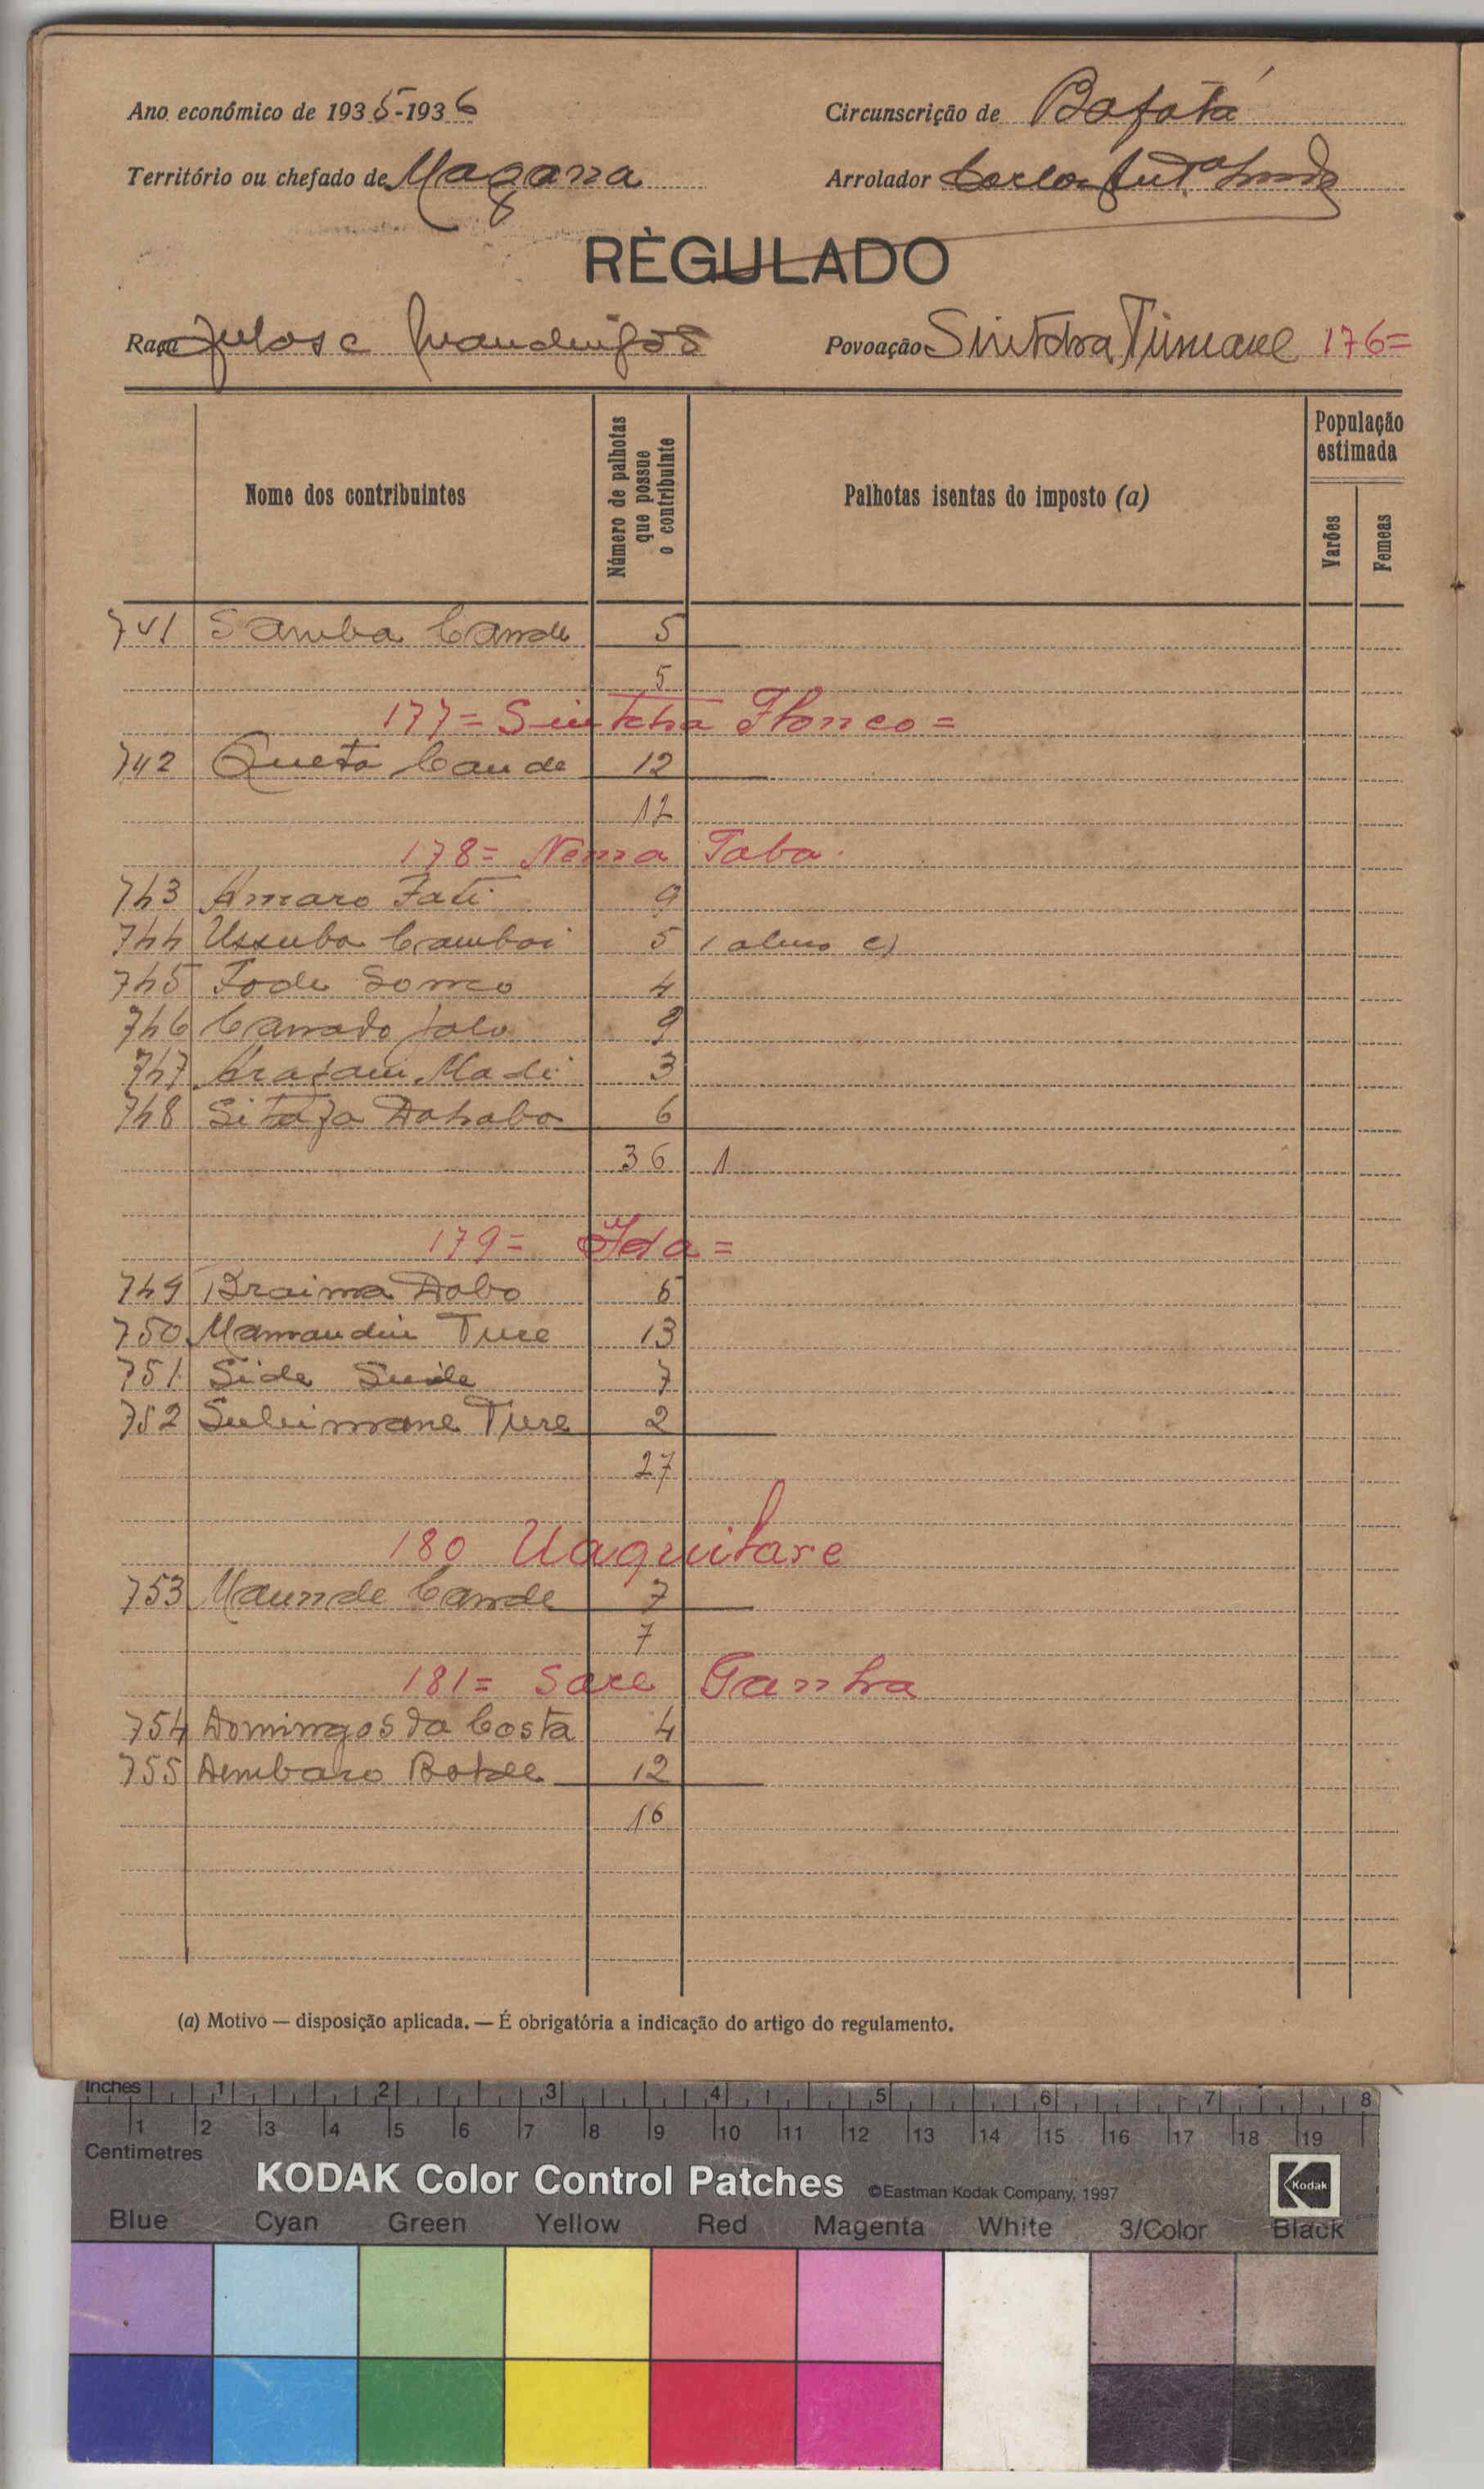 Ano económico de 1935-1936
Circunscrição de Bafatá
Território ou chefado de
Arrolador Carlos
REGULADO
Raça Fulos e Mandingos
Povoação Sintcha Tumane 176=
Nome dos contribuintes
Número de palhotas que possue o contribuinte
Palhotas isentas do imposto (a)
População estimada
Varões
Femeas
741 Samba Cande 5
5
177= Sintcha
742 Queta Cande 12
12
178= Nema Taba
743 Amaro Fati 9
744 Ussuba Camboi 5 1 e)
745 Fode Sonco 4
746 Canado Jalo 9
747 Madi 3
748 Dahabo 6
36 1
179= Ida=
749 Braima Dabo 5
750 Mamandin Ture 13
751 Side 7
752 Suleimane Ture 2
27
180 Uaquilare
753 Maunde Cande 7
7
181= Sare Ganha
754 Domingos da Costa 4
755 Dembaro 12
16
(a) Motivo — disposição aplicada. — É obrigatória a indicação do artigo do regulamento.
Inches 1 2 3 4 5 6 7 8
1 2 3 4 5 6 7 8 9 10 11 12 13 14 15 16 17 18 19
Centimetres
KODAK Color Control Patches ©Eastman Kodak Company, 1997 Kodak
Blue Cyan Green Yellow Red Magenta White 3/Color Black